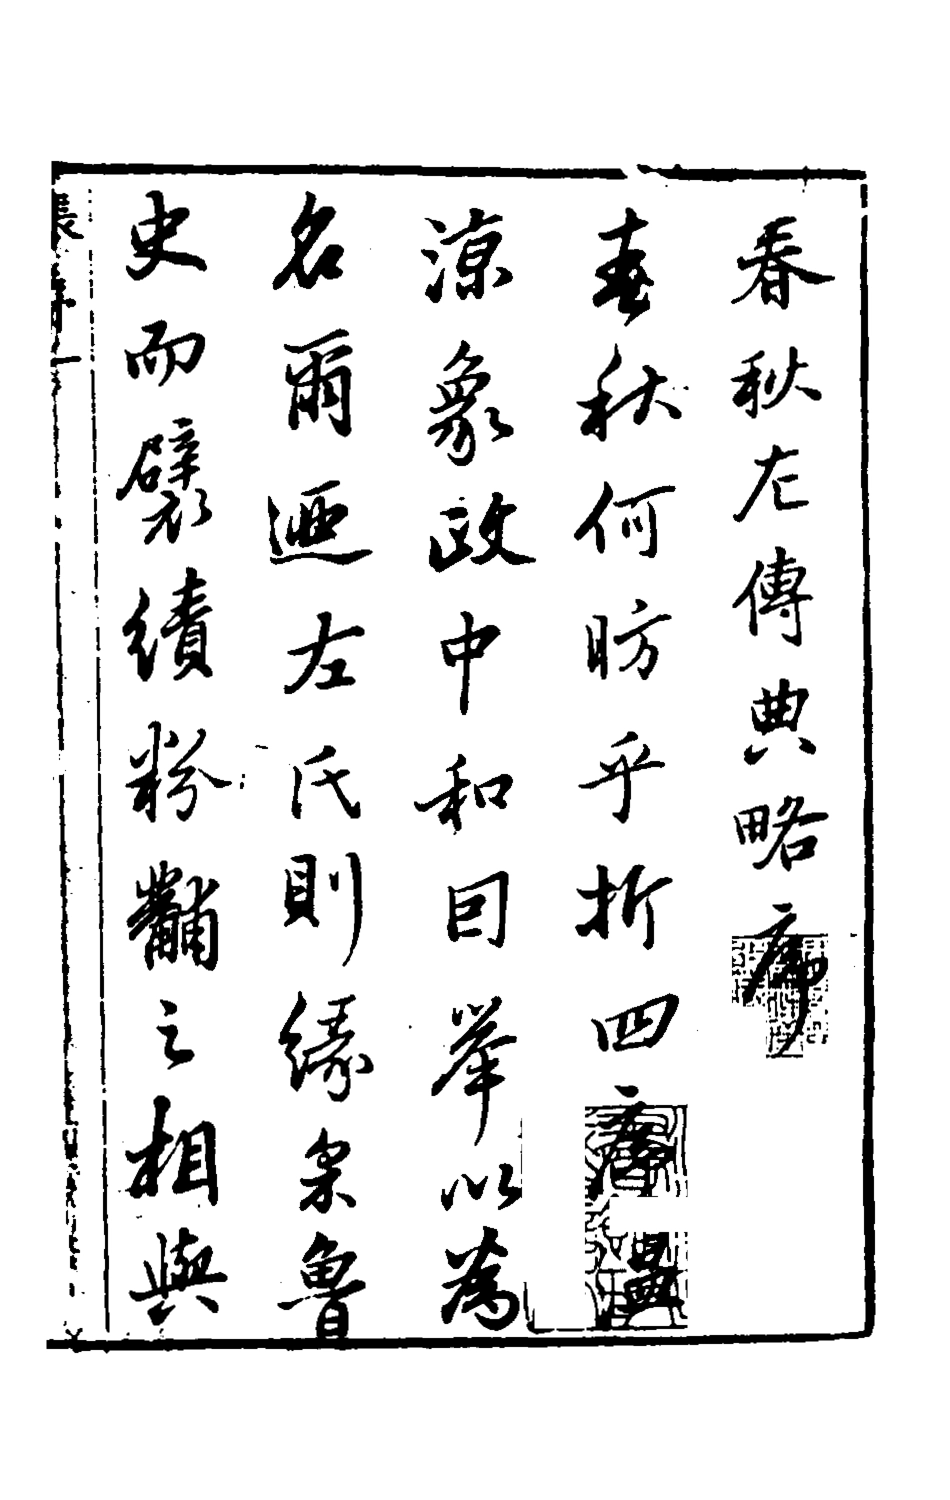 春秋左傳典略序
春秋何昉乎折四序溫
涼象政中和因舉以為
名爾迺左氏則緣宗魯
史而襞績粉黼之相與